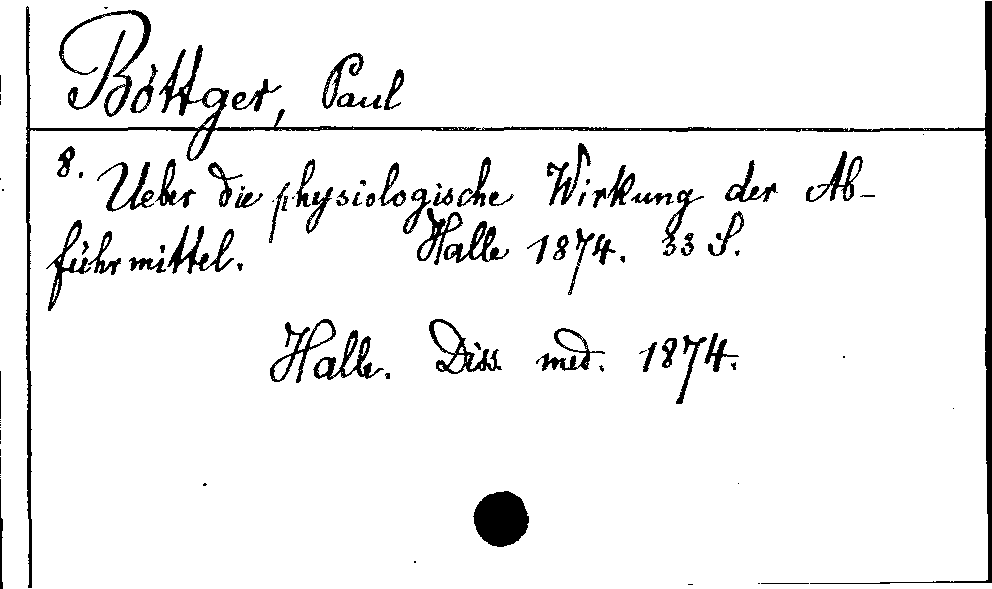 Böttger, Paul
8. Ueber die physiologische Wirkung der Ab-
führmittel. Halle 1874. 33 S.
Halle. Diss. med. 1874.